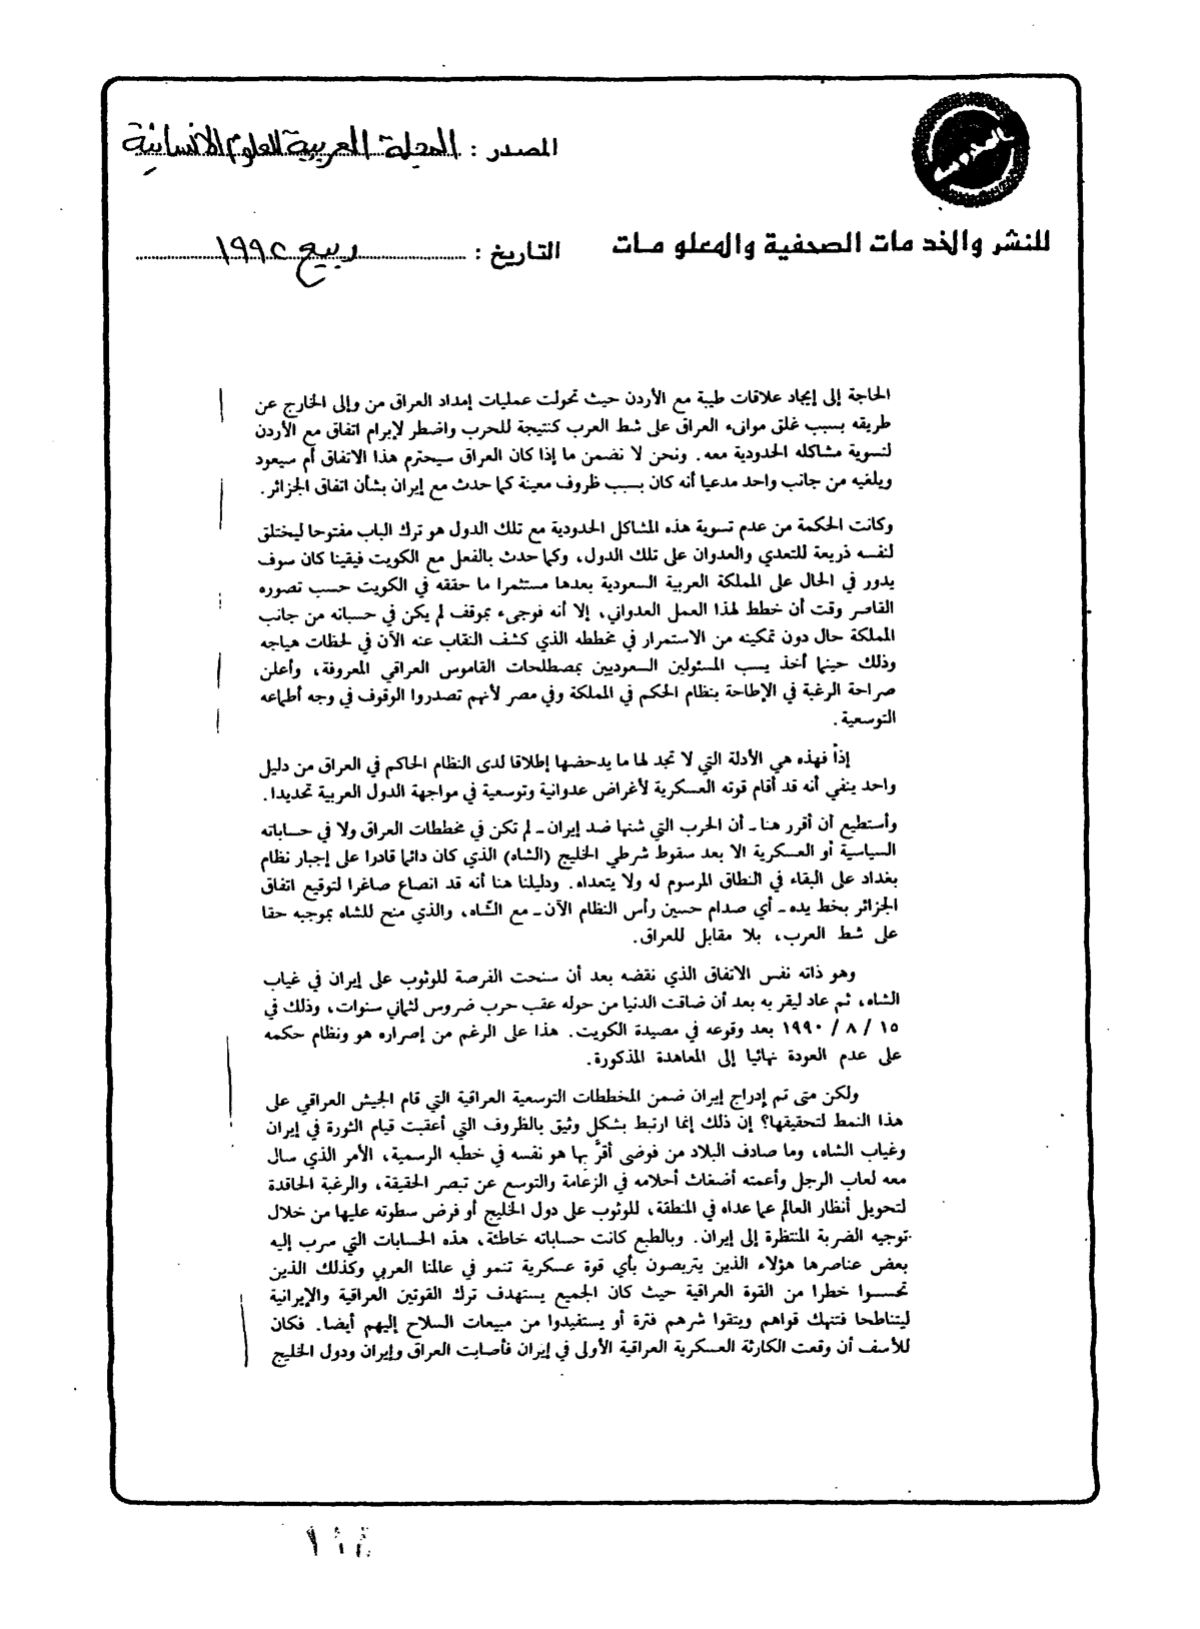 المصدر : المجلة العربية للعلوم الانسانية
للنشر والخدمات الصحفية والمعلومات
التاريخ : ربيع ١٩٩٢
الحاجة إلى إيجاد علاقات طيبة مع الأردن حيث تحولت عمليات إمداد العراق من وإلى الخارج عن
طريقه بسبب غلق موانىء العراق على شط العرب كنتيجة للحرب واضطر لإبرام اتفاق مع الأردن
لتسوية مشاكله الحدودية معه. ونحن لا نضمن ما إذا كان العراق سيحترم هذا الاتفاق أم سيعود
ويلغيه من جانب واحد مدعيا أنه كان بسبب ظروف معينة كما حدث مع إيران بشأن اتفاق الجزائر.
وكانت الحكمة من عدم تسوية هذه المشاكل الحدودية مع تلك الدول هو ترك الباب مفتوحا ليختلق
لنفسه ذريعة للتعدي والعدوان على تلك الدول، وكما حدث بالفعل مع الكويت فيقينا كان سوف
يدور في الحال على المملكة العربية السعودية بعدها مستثمرا ما حققه في الكويت حسب تصوره
القاصر وقت أن خطط لهذا العمل العدواني، إلا أنه فوجىء بموقف لم يكن في حسبانه من جانب
المملكة حال دون تمكينه من الاستمرار في مخططه الذي كشف النقاب عنه الآن في لحظات هياجه
وذلك حينما أخذ يسب المسئولين السعوديين بمصطلحات القاموس العراقي المعروفة، وأعلن
صراحة الرغبة في الإطاحة بنظام الحكم في المملكة وفي مصر لأنهم تصدروا الوقوف في وجه أطماعه
التوسعية.
إذاً فهذه هي الأدلة التي لا تجد لها ما يدحضها إطلاقا لدى النظام الحاكم في العراق من دليل
واحد ينفي أنه قد أقام قوته العسكرية لأغراض عدوانية وتوسعية في مواجهة الدول العربية تحديدا.
وأستطيع أن أقرر هنا - أن الحرب التي شنها ضد إيران - لم تكن في مخططات العراق ولا في حساباته
السياسية أو العسكرية الا بعد سقوط شرطي الخليج (الشاه) الذي كان دائما قادرا على إجبار نظام
بغداد على البقاء في النطاق المرسوم له ولا يتعداه. ودليلنا هنا أنه قد انصاع صاغرا لتوقيع اتفاق
الجزائر بخط يده - أي صدام حسين رأس النظام الآن - مع الشاه، والذي منح للشاه بموجبه حقا
على شط العرب، بلا مقابل للعراق.
وهو ذاته نفس الاتفاق الذي نقضه بعد أن سنحت الفرصة للوثوب على إيران في غياب
الشاه، ثم عاد ليقر به بعد أن ضاقت الدنيا من حوله عقب حرب ضروس لثماني سنوات، وذلك في
١٥ / ٨ / ١٩٩٠ بعد وقوعه في مصيدة الكويت. هذا على الرغم من إصراره هو ونظام حكمه
على عدم العودة نهائيا إلى المعاهدة المذكورة.
ولكن متى تم إدراج إيران ضمن المخططات التوسعية العراقية التي قام الجيش العراقي على
هذا النمط لتحقيقها؟ إن ذلك إنما ارتبط بشكل وثيق بالظروف التي أعقبت قيام الثورة في إيران
وغياب الشاه، وما صادف البلاد من فوضى أقرَّ بها هو نفسه في خطبه الرسمية، الأمر الذي سال
معه لعاب الرجل وأعمته أضغاث أحلامه في الزعامة والتوسع عن تبصر الحقيقة، والرغبة الحاقدة
لتحويل أنظار العالم عما عداه في المنطقة، للوثوب على دول الخليج أو فرض سطوته عليها من خلال
توجيه الضربة المنتظرة إلى إيران. وبالطبع كانت حساباته خاطئة، هذه الحسابات التي سرب إليه
بعض عناصرها هؤلاء الذين يتربصون بأي قوة عسكرية تنمو في عالمنا العربي وكذلك الذين
تحسسوا خطرا من القوة العراقية حيث كان الجميع يستهدف ترك القوتين العراقية والإيرانية
ليتناطحا فتنهك قواهم ويتقوا شرهم فترة أو يستفيدوا من مبيعات السلاح إليهم أيضا. فكان
للأسف أن وقعت الكارثة العسكرية العراقية الأولى في إيران فأصابت العراق وإيران ودول الخليج